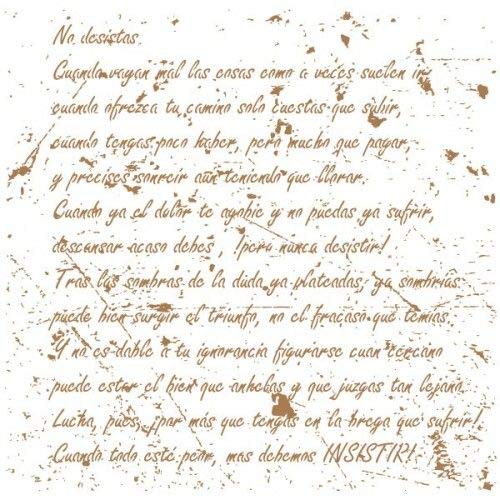 No desistas.
Cuando vayan mal las cosas como a veces suelen ir
cuando ofrezca tu camino solo cuestas que subir,
cuando tengas poco haber, pero mucho que pagar,
y precises sonreir aún teniendo que llorar.
Cuando ya el dolor te agobie y no puedas ya sufrir,
descansar acaso debes , !pero nunca desistir!
Tras las sombras de la duda ya plateadas, ya sombrías
puede bien surgir el triunfo, no el fracaso que temías.
Y no es dable a tu ignorancia figurarse cuan cercano
puede estar el bien que anhelas y que juzgas tan lejano,
Lucha, pues, ¡por más que tengas en la brega que sufrir!
Cuando todo este peor, mas debemos INSISTIR!